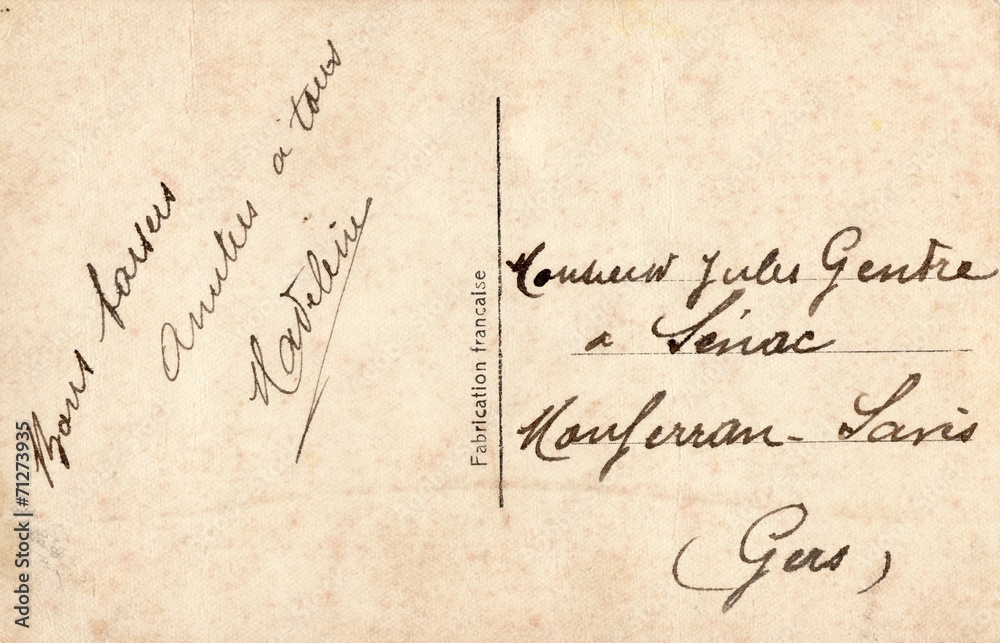 Bons baisers
Amitiés à tous
Madeleine
Fabrication française
Monsieur Jules Gendre
a Sénac
Monferran - Savès
(Gers)
Adobe Stock | #71273935